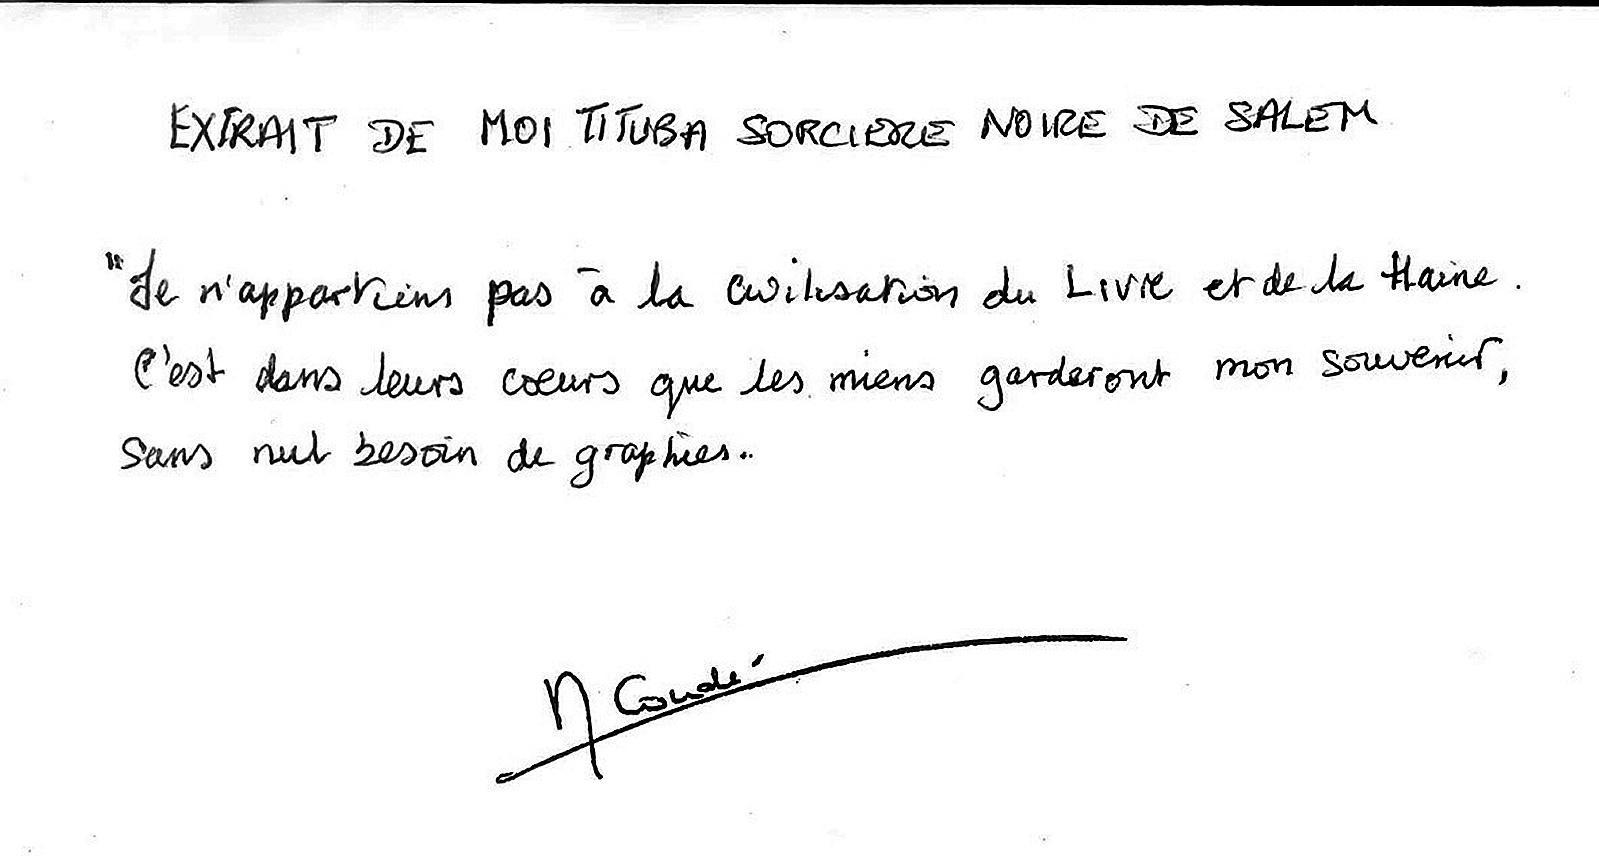 EXTRAIT DE MOI TITUBA SORCIERE NOIRE DE SALEM
"Je n'appartiens pas à la civilisation du Livre et de la Haine.
C'est dans leurs coeurs que les miens garderont mon souvenir,
sans nul besoin de graphies..
M Condé